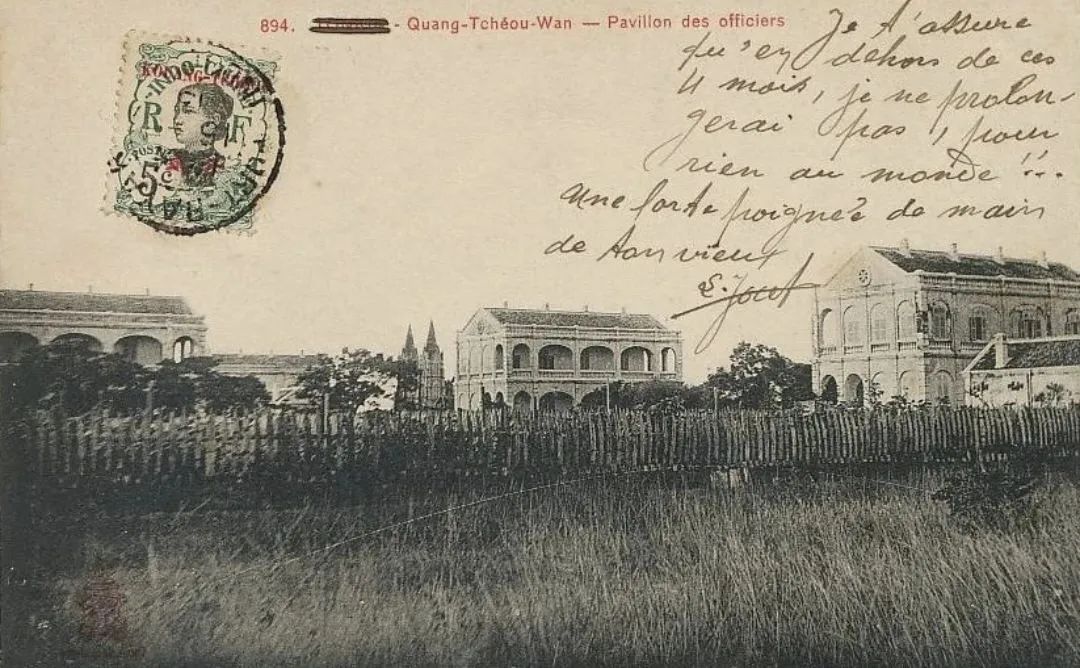 894. - Quang-Tchéou-Wan — Pavillon des officiers
Je t'assure
qu'en dehors de ces
4 mois, je ne prolon-
gerai pas, pour
rien au monde !!...
Une forte poignée de main
de ton vieux
INDO-CHINE
KOUANG-TCHÉOU
R F
POSTES
5c